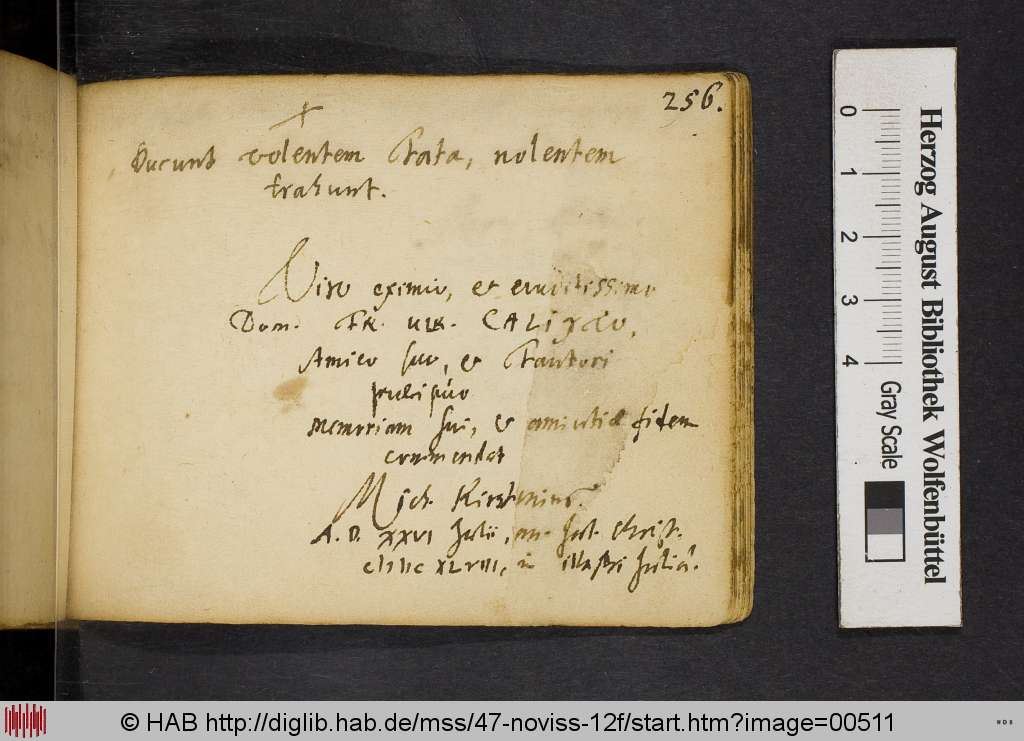 256.
Ducunt volentem Fata, nolentem
trahunt.
Viro eximio, et eruditissimo
Dom. FR. ULR. CALIXTO,
Amico suo, et Fautori
Memoriam sui, et amicitiæ fidem
commendat
Mich.
A. D. XXVI Julii, an. Christ.
XLVIII, in illustri Juliâ.
0 1 2 3 4
Gray Scale
Herzog August Bibliothek Wolfenbüttel
© HAB http://diglib.hab.de/mss/47-noviss-12f/start.htm?image=00511